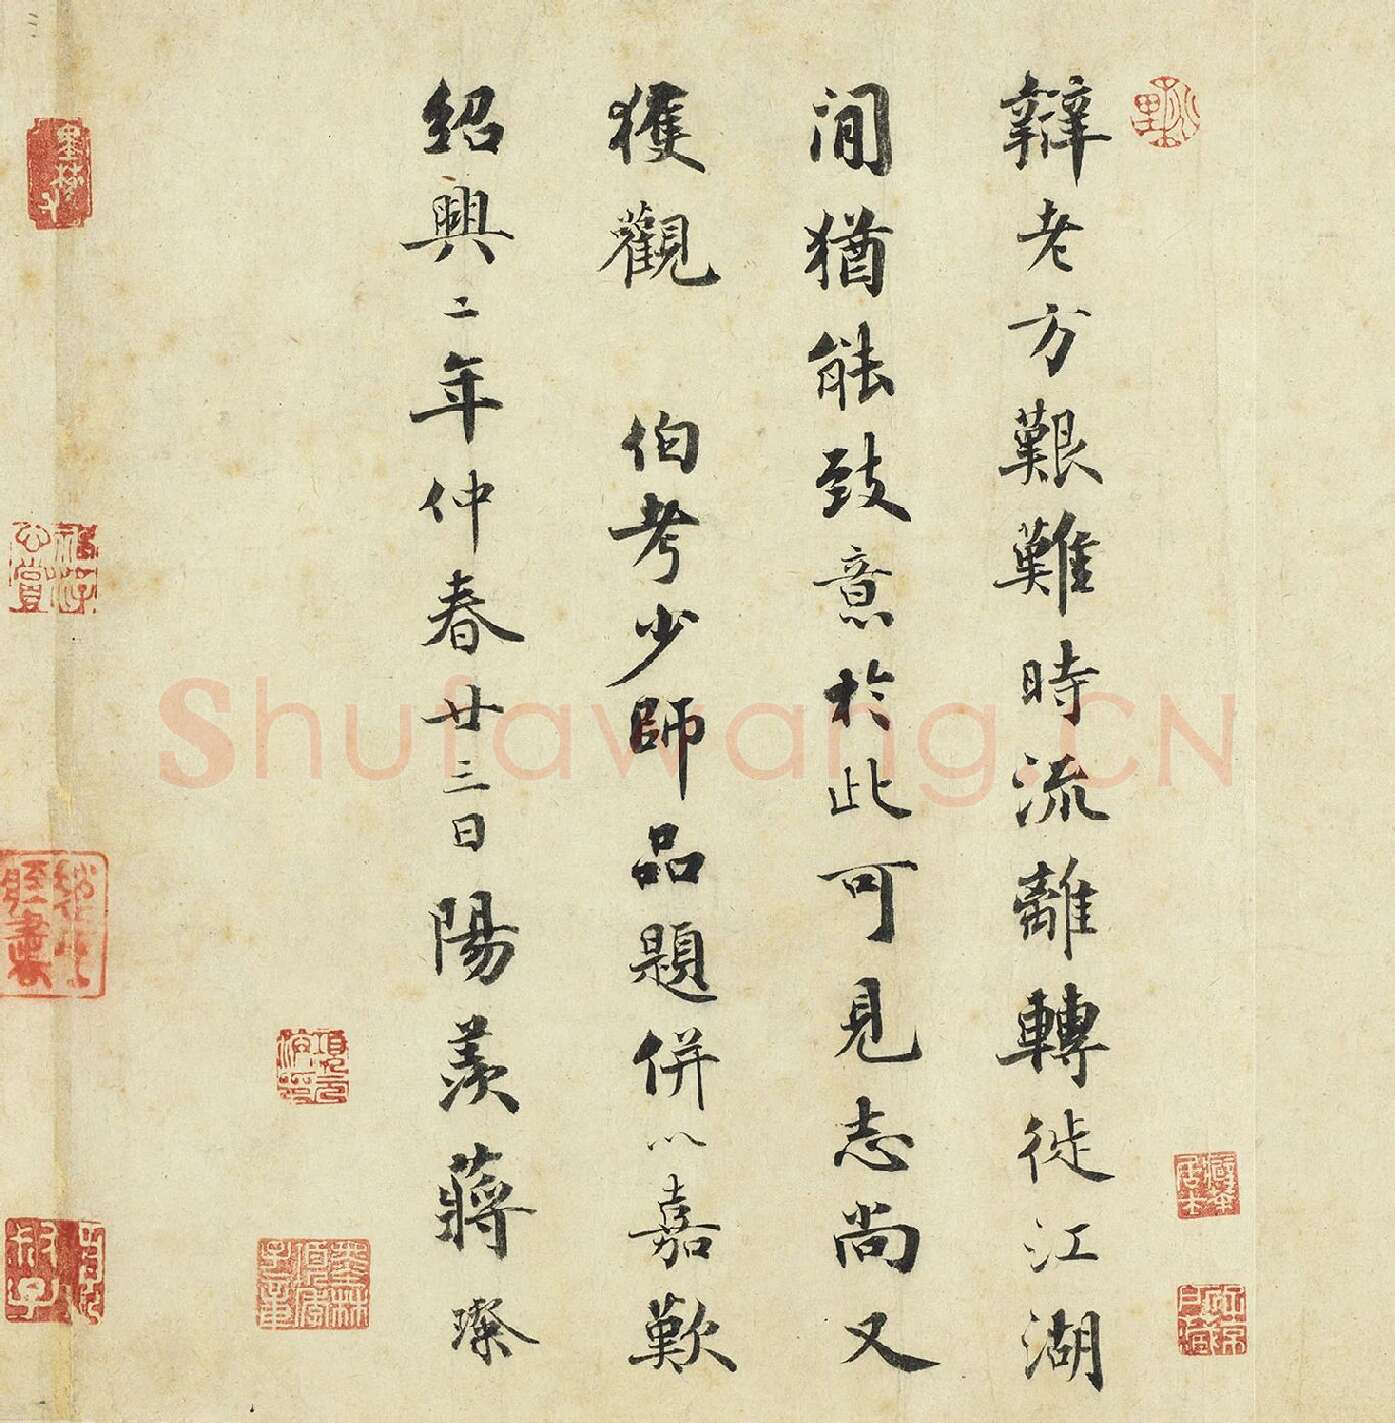 辯老方艱難時流離轉徙江湖
間猶能致意於此可見志尚又
獲觀 伯考少師品題併以嘉歎
紹興二年仲春廿三日陽羨蔣璨
項元汴印
Shufawang.CN